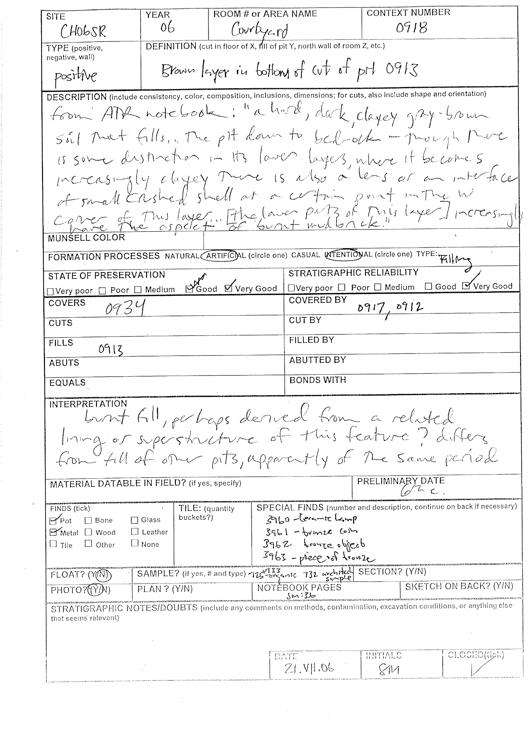 SITE CH06SR
YEAR 06
ROOM # or AREA NAME Courtyard
CONTEXT NUMBER 0918
TYPE (positive, negative, wall) positive
DEFINITION (cut in floor of X, fill of pit Y, north wall of room Z, etc.)
Brown layer in bottom of cut of pit 0913
DESCRIPTION (include consistency, color, composition, inclusions, dimensions; for cuts, also include shape and orientation)
from ATR notebook: "a hard, dark, clayey gray-brown
soil that fills... The pit down to bedrock - though there
is some distinction in its lower layers, where it becomes
increasingly clayey There is also a lens or an interface
of small crushed shell at a certain point in the W
corner of this layer... [the lower parts of this layer] increasingly
have the aspect of burnt mudbrick"
MUNSELL COLOR
FORMATION PROCESSES NATURAL ARTIFICIAL (circle one) CASUAL INTENTIONAL (circle one) TYPE: Filling
STATE OF PRESERVATION
Very poor Poor Medium Good Very Good
STRATIGRAPHIC RELIABILITY
Very poor Poor Medium Good Very Good
COVERS 0934
COVERED BY 0917, 0912
CUTS
CUT BY
FILLS 0913
FILLED BY
ABUTS
ABUTTED BY
EQUALS
BONDS WITH
INTERPRETATION
burnt fill, perhaps derived from a related
lining or superstructure of this feature? differs
from fill of other pits, apparently of the same period
MATERIAL DATABLE IN FIELD? (if yes, specify)
PRELIMINARY DATE
6th c.
FINDS (tick)
Pot Bone Glass
Metal Wood Leather
Tile Other None
TILE: (quantity buckets?)
SPECIAL FINDS (number and description, continue on back if necessary)
3960 - ceramic lamp
3961 - bronze coin
3962 bronze object
3963 - piece of bronze
FLOAT? (Y/N)
SAMPLE? (if yes, # and type) organic 732 sample
SECTION? (Y/N)
PHOTO? (Y/N)
PLAN? (Y/N)
NOTEBOOK PAGES
SM:36
SKETCH ON BACK? (Y/N)
STRATIGRAPHIC NOTES/DOUBTS (include any comments on methods, contamination, excavation conditions, or anything else
that seems relevant)
DATE 21.VII.06
INITIALS SM
CLOSED (tick)